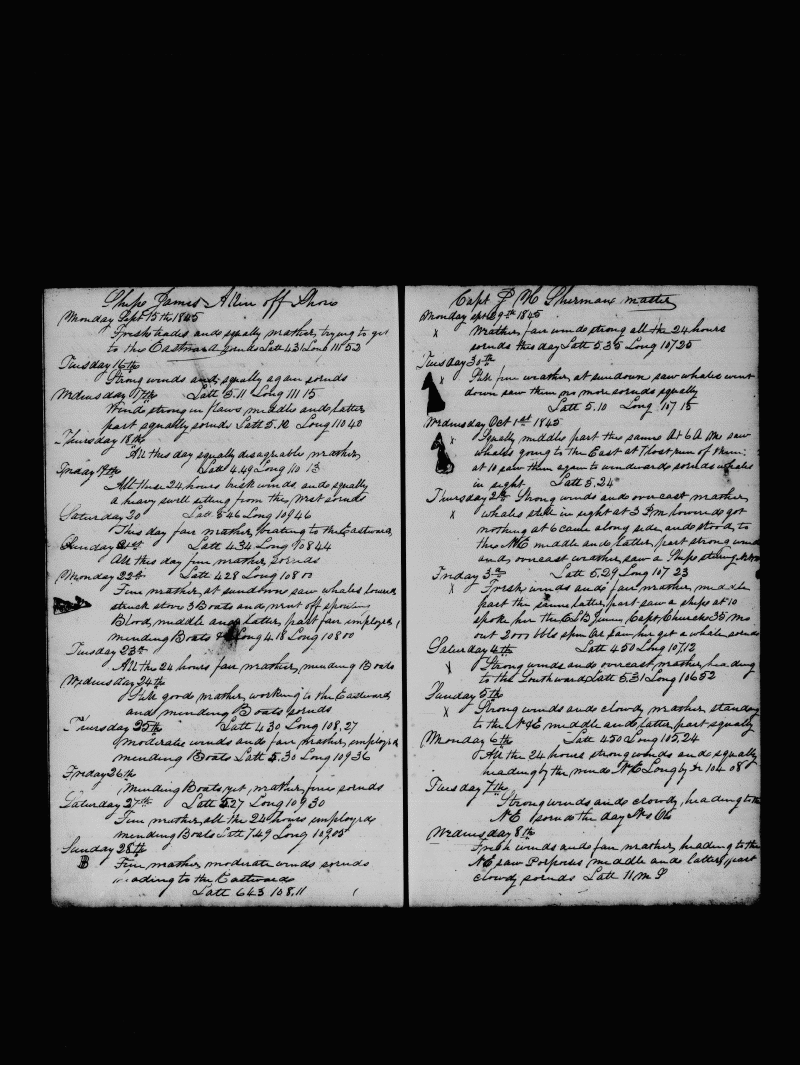 Ships James Allen off Shore
Monday Sept 15th 1845
Fresh trades and squally weather, trying to get
to the Eastward so ends Latt 4.31 Long 111 52
Tuesday 16th
Strong winds and squally again so ends
Wednesday 17th Latt 5.11 Long 111 15
Wind strong in flaws middle and latter
part squally so ends Latt 5.12 Long 110 40
Thursday 18th
All this day squally disagreable weather
Friday 19th Latt 4.49 Long 110 13
All these 24 hours brisk winds and squally
a heavy swell setting from the West so ends
Saturday 20 Latt 5 46 Long 109 46
This day fair weather, beating to the Eastward,
Sunday 21st Latt 4.34 Long 108 44
All this day fine weather so ends
Monday 22th Latt 4 28 Long 108 00
Fine weather, at sundown saw whales lowered
struck stove 3 Boats and went off spouting
Blood, middle and latter, part fair employed,
mending Boats Long 4.18 Long 108 00
Tuesday 23th
All the 24 hours fair weather, mending Boats
Wednesday 24th
Still good weather, working to the Eastward,
and mending Boats so ends
Thursday 25th Latt 4 30 Long 108,27
Moderate winds and fair weather, employed
mending Boats Latt 5.30 Long 109 36
Friday 26th
Mending Boats yet, weather, fine so ends
Saturday 27th Latt 5.27 Long 109 30
Fine weather, all the 24 hours employed
mending Boats Latt 7.49 Long 109,05
Sunday 28th
B Fine weather, moderate winds so ends
heading to the Eastward
Latt 6 43 108.11
Capt J H Sherman master
Monday 29th 1845
x Weather, fair winds strong all the 24 hours
so ends this day Latt 5.35 Long 107 25
Tuesday 30th
x Still fine weather, at sundown saw whales went
down saw them no more so ends squally
Latt 5.10 Long 107 15
Wednesday Oct 1st 1845
x Squally middle part the same At 6 A M saw
whales going to the East at 7 lost run of them:
at 10 saw them again to windward so ends whales
in sight Latt 5.24
Thursday 2th Strong winds and overcast weather,
x whales still in sight at 3 P m, lowered got
nothing at 6 came along side and stood to
the NE middle and latter, part strong winds
and, overcast weather, saw a Ships
Friday 3th Latt 5.29 Long 107 23
x Fresh winds and fair weather, middle
part the same, latter part saw a ships at 10
spoke her the Capt Church 35 mo
out 2000 bbls sperm Oil saw her get a whale so ends
Saturday 4th Latt 4 50 Long 107,12
x Strong winds and overcast weather, heading
to the Southward Latt 5.31 Long 106 52
Sunday 5th
x Strong winds and cloudy weather, standing
to the N & E middle and latter, part squally
Monday 6th Latt 4 50 Long 105,24
All the 24 hours strong winds and squally
heading by the wind NE Long by Dr 104 08
Tuesday 7th
Strong winds and cloudy, heading to the
NE so ends the day No Ob
Wednesday 8th
Fresh winds and fair weather, heading to the
NE saw Porpoises middle and latter, part
cloudy so ends Latt 11 m S